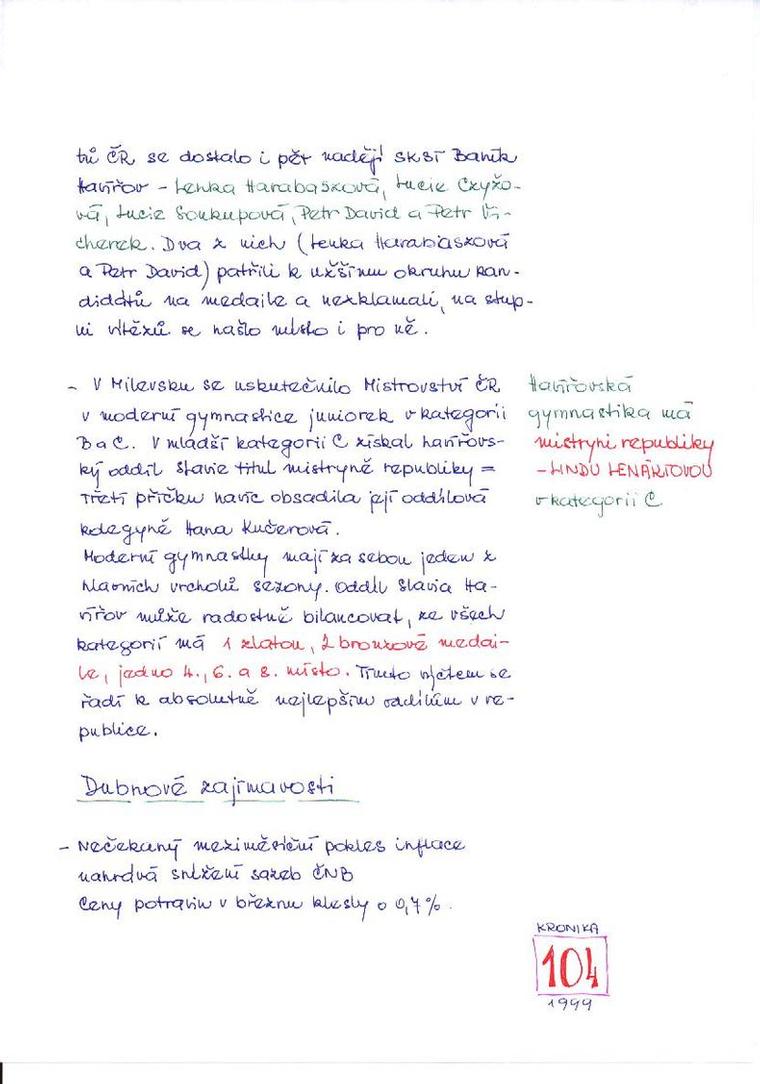 trů ČR se dostalo i pět nadějí SKSI Baník
Havířov - Lenka Harabaszová, Lucie Czyžo-
vá, Lucie Soukupová, Petr David a Petr Vi-
cherek. Dva z nich (Lenka Harabiaszová
a Petr David) patřili k užšímu okruhu kan-
didátů na medaile a nezklamali, na stup-
ni vítězů se našlo místo i pro ně.
- V Milevsku se uskutečnilo Mistrovství ČR
v moderní gymnastice juniorek v kategorii
B a C. V mladší kategorii C získal havířovs-
ký oddíl Slavie titul mistryně republiky =
Třetí příčku navíc obsadila její oddílová
kolegyně Hana Kučerová.
Moderní gymnastky mají za sebou jeden z
hlavních vrcholů sezony. Oddíl Slavia Ha-
vířov může radostně bilancovat, ze všech
kategorií má 1 zlatou, 2 bronzové medai-
le, jedno 4., 6. a 8. místo. Tímto výčtem se
řadí k absolutně nejlepším oddílům v re-
publice.
Havířovská
gymnastika má
mistryni republiky
- LINDU LENÁRTOVOU
v kategorii C
Dubnové zajímavosti
- Nečekaný meziměsíční pokles inflace
nahrává snížení sazeb ČNB
Ceny potravin v březnu klesly o 0,7%.
KRONIKA
104
1999